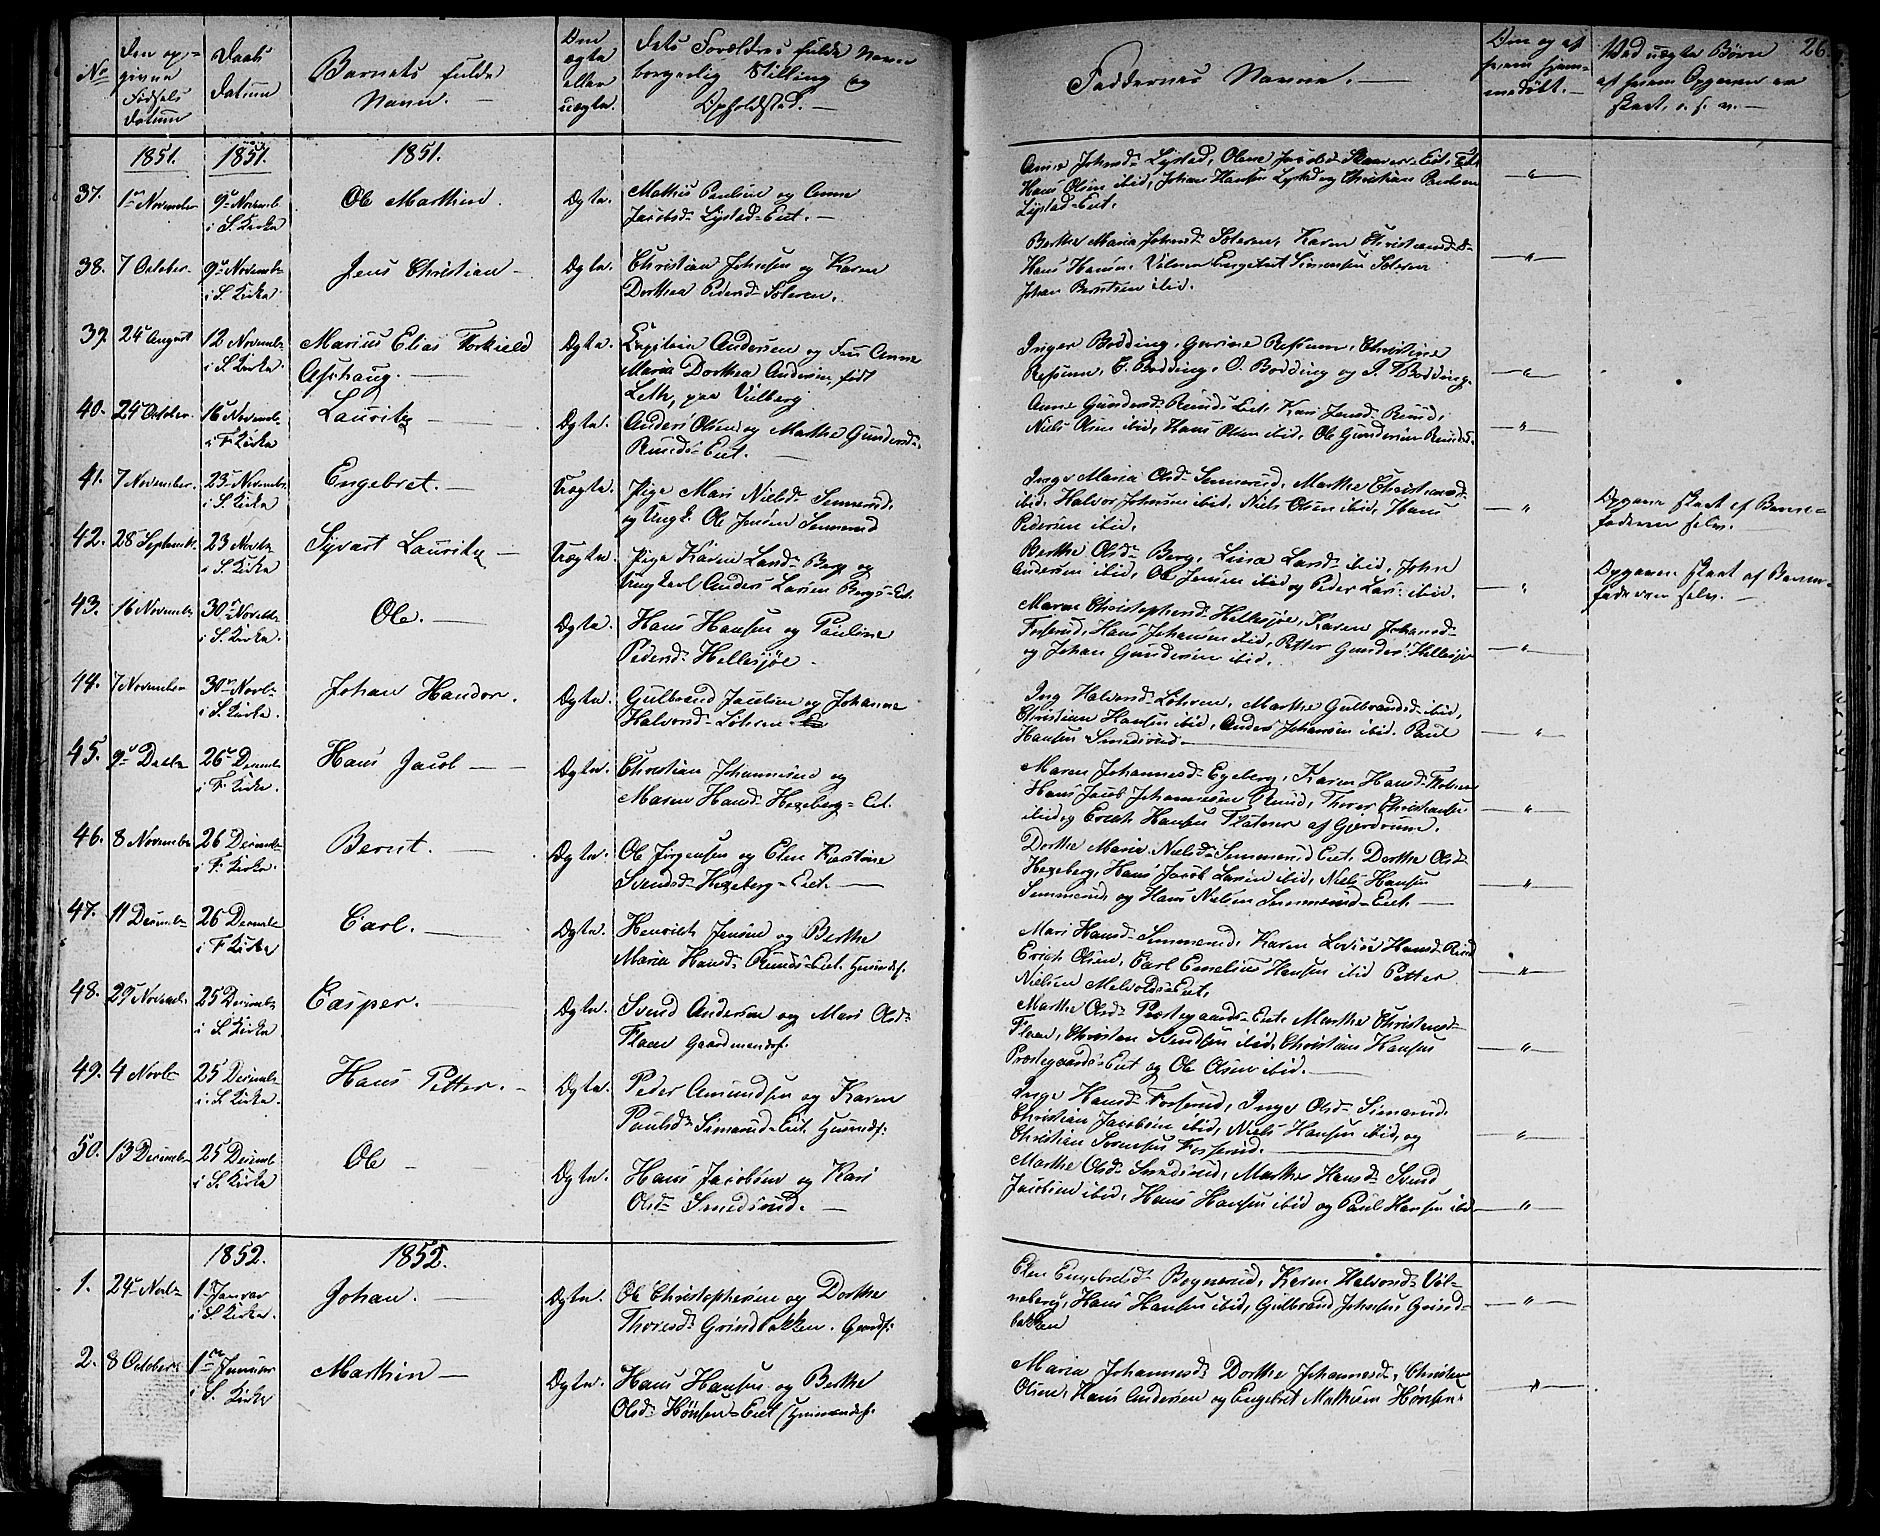 No
Den op-
givne
Fødsels
Datum
Daabs
Datum
Barnets fulde
Navn. —
Om
ægte
eller
uægte
Dets Forældres fulde Navn
borgerlig Stilling og
Opholdsted. —
Faddernes Navne. —
Om og af
hvem hjem-
medøbt. —
Ved uægte Børn
af hvem Opgaven er
skeet, o. s. v. —
26
1851. 1851. 1851.
37. 1 November 9 Novemb
i S. Kirke
Ole Mathin. Ægte. Mathis Paulsen og Anne
Jacobsd. Lystad-Eiet. —
Anne Johnsd. Lystad, Olene Jacobsd.
Hans Olsen ibid, Johan Hansen Lystad og Christian Paulsen
Lystad-Eiet.
38. 7 October. 9 Novemb
i S. Kirke
Jens Christian — Ægte. Christian Johnsen og Karen
Dorthea Pedersd. Soleren.
Berthe Maria Johnsd. Soleren, Karen Christiansd.
Hans Hansen Engebret Simensen Soleren
Johan Berntsen ibid.
39. 24 August 12 Novemb
i S. Kirke
Marius Elias Torkield
Aschaug. —
Ægte. Capitain Andersen og Fru Anne
Maria Dorthea Andersen født
Leth, paa Vilberg
Inger Bodding, Gurine Refsum, Christine
Refsum, C. Bodding, O. Bodding og J. Bodding.
40. 24 October 16 Novemb
i F. Kirke
Lauritz — Ægte. Anders Olsen og Marthe Gundersd.
Ruuds-Eiet. —
Anne Gundersd. Ruuds Eiet, Kari Jensd. Ruud,
Niels Olsen ibid, Hans Olsen ibid, Ole Gundersen Ruuds.
41. 7 November. 23 Novemb
i S. Kirke
Engebret. — Uægte. Pige Mari Nielsd. Semerud,
og Ungk. Ole Jensen Semerud
Inge Maria Olsd. Semerud, Marthe Christiansd.
ibid, Halvor Johnsen ibid, Niels Olsen ibid, Hans
Pedersen ibid.
Opgaven skeet af Barne-
faderen selv.
42. 28 Septemb. 23 Novb
i S. Kirke
Syvart Lauritz — Uægte. Pige Karen Larsd. Berg og
Ungkarl Anders Larsen Bergs-Eiet.
Berthe Olsd. Berg, Lina Larsd. ibid, John
Andersen ibid, Ole Jensen ibid og Peder Lars. ibid.
Opgaven skeet af Barne-
faderen selv. —
43. 16 Novemb 30 Novemb
i S. Kirke.
Ole. — Ægte. Hans Hansen og Pauline
Pedersd. Hellesjøe.
Maren Christophersd. Hellesjøe, Karen Johansd.
Foserud, Hans Johansen ibid, Petter Gunders. Hellesjøe
og Johan Gundersen ibid.
44. 7 November 30 Novb
i S. Kirke.
Johan Handor. Ægte. Gulbrand Jacobsen og Johanne
Halvorsd. Løhren
Ing Halvorsd. Løhren, Marthe Gulbrandsd. ibid,
Christian Hansen ibid, Anders Johansen ibid. Paul
Hansen Smedsrud —
45. 9 Decbr 26 Decemb
i F. Kirke.
Hans Jacob — Ægte. Christian Johannesen og
Maren Hansd. Hexeberg-Eiet.
Maren Johannesd. Egeberg, Karen Hansd.
Hans Jacob Johannesen Ruud, Thorer Christiansen
ibid og Erich Hansen Flatner af Gjerdrum.
46. 8 November 26 Decemb
i F. Kirke.
Bernt. — Ægte. Ole Jørgensen og Elen Kirstine
Svendsd. Hexeberg-Eiet. —
Dorthe Marie Nielsd. Semmerud Eiet, Dorthe Olsd.
Hexeberg, Hans Jacob Larsen ibid, Niels Hansen
Semmerud og Hans Nielsen Semmerud-Eiet. —
47. 11 Decemb 26 Decemb
i F. Kirke
Carl. — Ægte. Henrich Jensen og Berthe
Maria Hansd. Ruuds-Eiet. Huusmdsf.
Mari Hansd. Semmerud, Karen Lovise Hansd. Ruud
Erich Olsen, Carl Emelius Hansen ibid Petter
Nielsen Melvolds-Eiet.
48. 29 Novemb. 25 Decemb
i S. Kirke
Casper. Ægte. Svend Andersen og Mari Olsd.
Flaen Gaardmandsf.
Marthe Olsd. Præstegaards-Eiet, Marthe Christensd.
Flaen, Christen Svendsen ibid, Christian Hansen
Præstegaards-Eiet og Ole Olsen ibid.
49. 4 Novb 25 Decemb
i S. Kirke.
Hans Petter. — Ægte. Peder Amundsen og Karen
Paulsd. Simarud-Eiet. Huusmdsf.
Inge Hansd. Foserud, Inge Olsd. Simerud,
Christian Jacobsen ibid, Niels Hansen ibid og
Christian Svensen Foserud. —
50. 13 Decemb 25 Decemb
i S. Kirke
Ole — Ægte. Hans Jacobsen og Kari
Olsd. Smedsrud. —
Marthe Olsd. Smedsrud, Marthe Hansd. Svend
Jacobsen ibid, Hans Hansen ibid og Paul Hansen ibid
1852. 1852.
1. 24 Novb 1 Januar
i S. Kirke.
Johan. — Ægte. Ole Christophersen og Dorthe
Thoresd. Grindbakken. Gaardf.
Elen Engebretsd. Bognerud, Karen Halvorsd. Vol-
neberg, Hans Hansen ibid, Gulbrand Johnsen Grind-
bakken
2. 8 October 1 Januar
i S. Kirke
Mathin — Ægte. Hans Hansen og Berthe
Olsd. Hønsen-Eiet (Huusmandsf.
Maria Johannesd. Dorthe Johannesd., Christen
Olsen, Hans Andersen og Engebret Mathisen Hønsen.